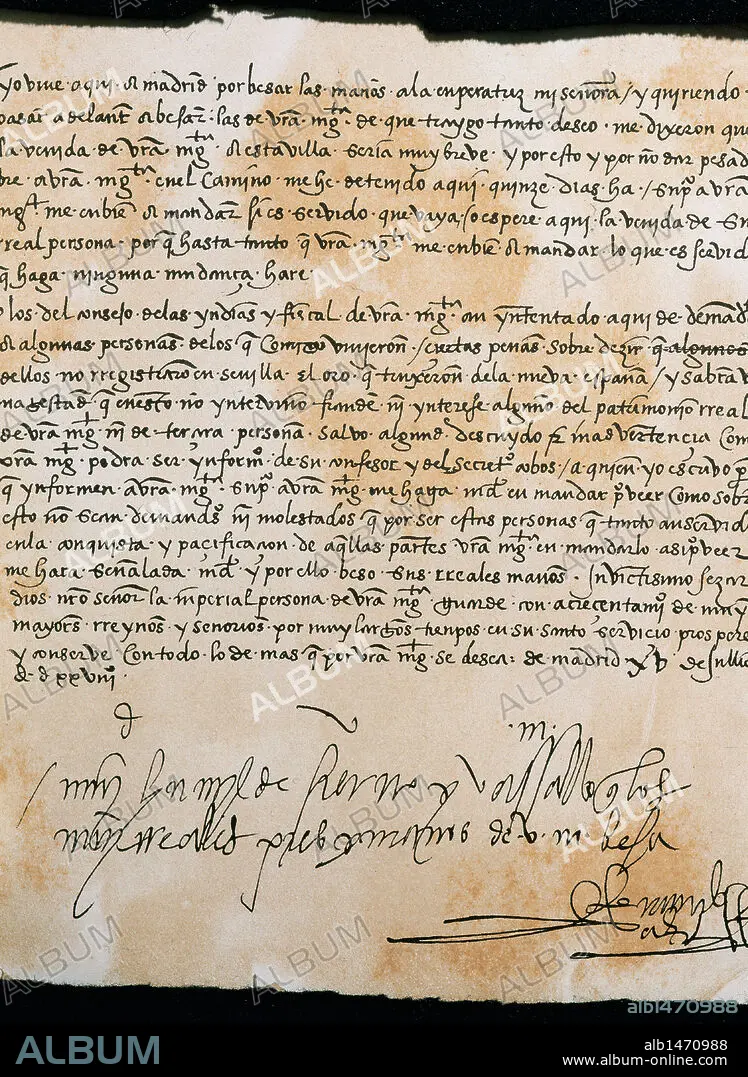 Yo vine aqui a madrid por besar las manos a la enperatriz mi señora / y quiriendo
pasar adelante a besar las de vra. mgt. de que traygo tanto deseo me dixeron que
la venida de vra. mgt. a esta villa seria muy breve y por esto y por no dar pesad
bre a vra. mgt. en el Camino me he detenido aqui quinze dias ha / supco a vra
mgt. me enbie a mandar si es servido que vaya / o espere aqui la venida de su
rreal persona porq hasta tanto q vra. mgt. me enbie a mandar lo que es servid
q haga ninguna mudança hare
los del consejo de las yndias y fiscal de vra. mgt. an yntentado aqui de demād
a algunas personas de los q Comigo vinieron / ciertas penas sobre dezir q algunos
dellos no rregistraron en sevilla El oro q truxeron de la nueva españa / y sabra v
magestad q en esto no yntervino fraude ni ynterese alguno del patrimonio rreal
de vra mgt ni de tercera persona salvo algund descuydo por inadvertencia Com
vra mgt podra ser ynformdo de su confesor y del Secreto cobos / a quien yo escrivo pa
q ynformen a vra mgt. supco a vra mgt me haga md en mandar pveer como sobr
esto no sean demandados ni molestados q por ser estas personas q tanto an servid
en la conquista y pacificacion de aqllas partes vra mgt en mandarlo asi pveer
me hara Señalada md y por ello beso sus rreales manos. Invictisimo sezar
dios nro señor la inperial persona de vra mgt guarde con acrecentamio de muy
mayores rreynos y señorios por muy largos tienpos en su santo servicio prospere
y conserve Con todo lo de mas q por vra mgt se desea: de madrid xv de Jullio
de dxxviii
d v. m.
muy humylde syervo y vassallo q los
muy rreales pies y manos de v. m. besa
Hernando
Cortes
ALBUM
alb1470988
ALBUM
alb1470988
www.album-online.com